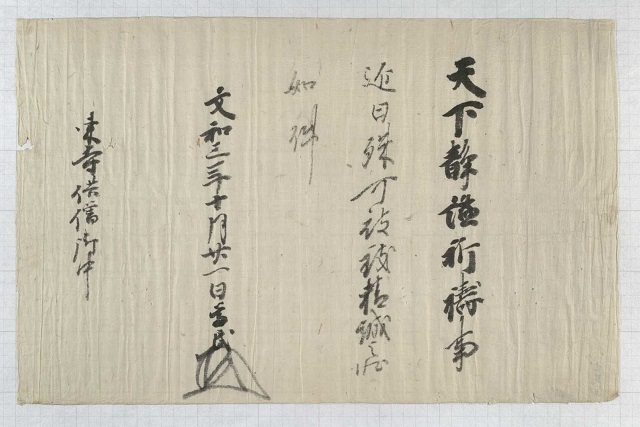 天下静謐祈祷事
近日殊可被致精誠之状
如件
文和三年十月廿一日 尊氏
東寺供僧御中